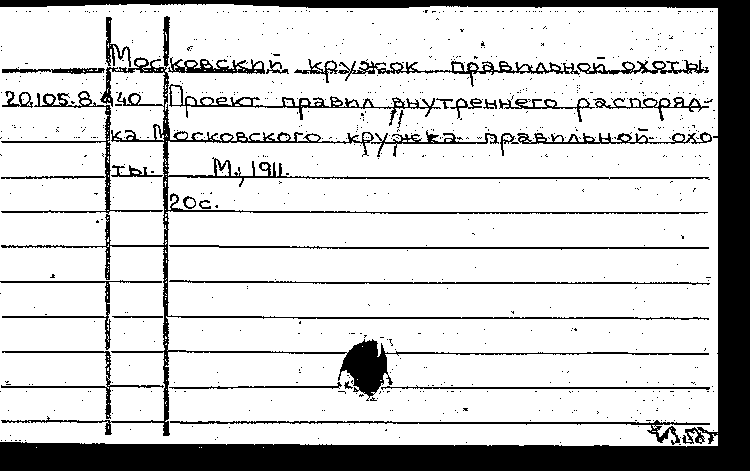 Московский кружок правильной охоты.
20.105.8.440 Проект правил внутреннего распоряд-
ка Московского кружка правильной охо-
ты. М., 1911.
20с.